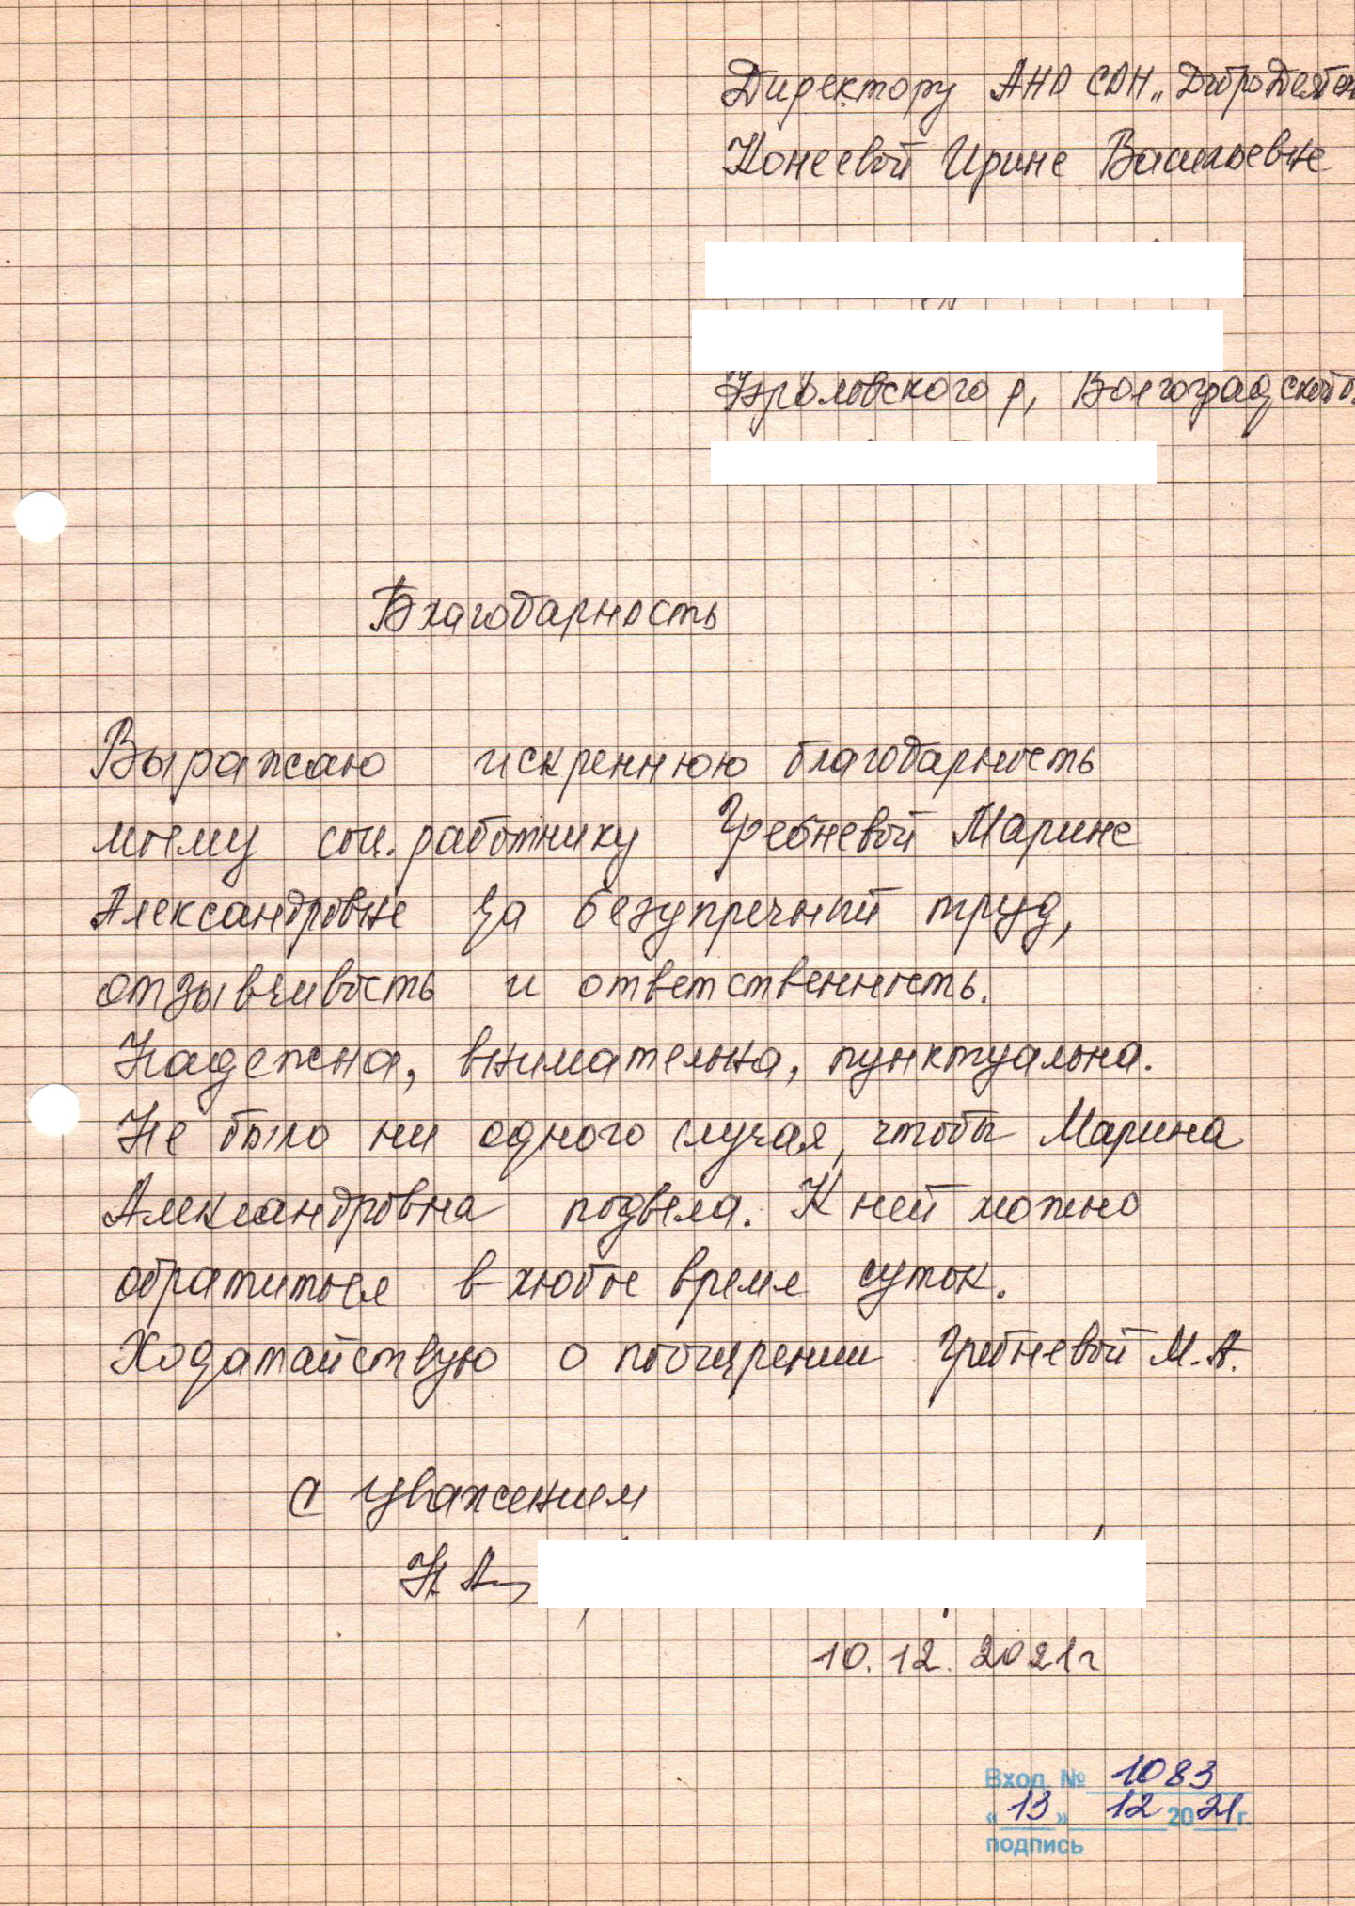 Директору АНО СОН „ДоброДеятел
Конеевой Ирине Васильевне
Фроловского р, Волгоградской о.
Благодарность
Выражаю искреннюю благодарность
моему соц. работнику Гребневой Марине
Александровне за безупречный труд,
отзывчивость и ответственность.
Надежна, внимательна, пунктуальна.
Не было ни одного случая, чтобы Марина
Александровна подвела. К ней можно
обратиться в любое время суток.
Ходатайствую о поощрении Гребневой М.А.
С уважением
10.12.2021г
Вход. № 1083
«13» 12 2021г.
подпись